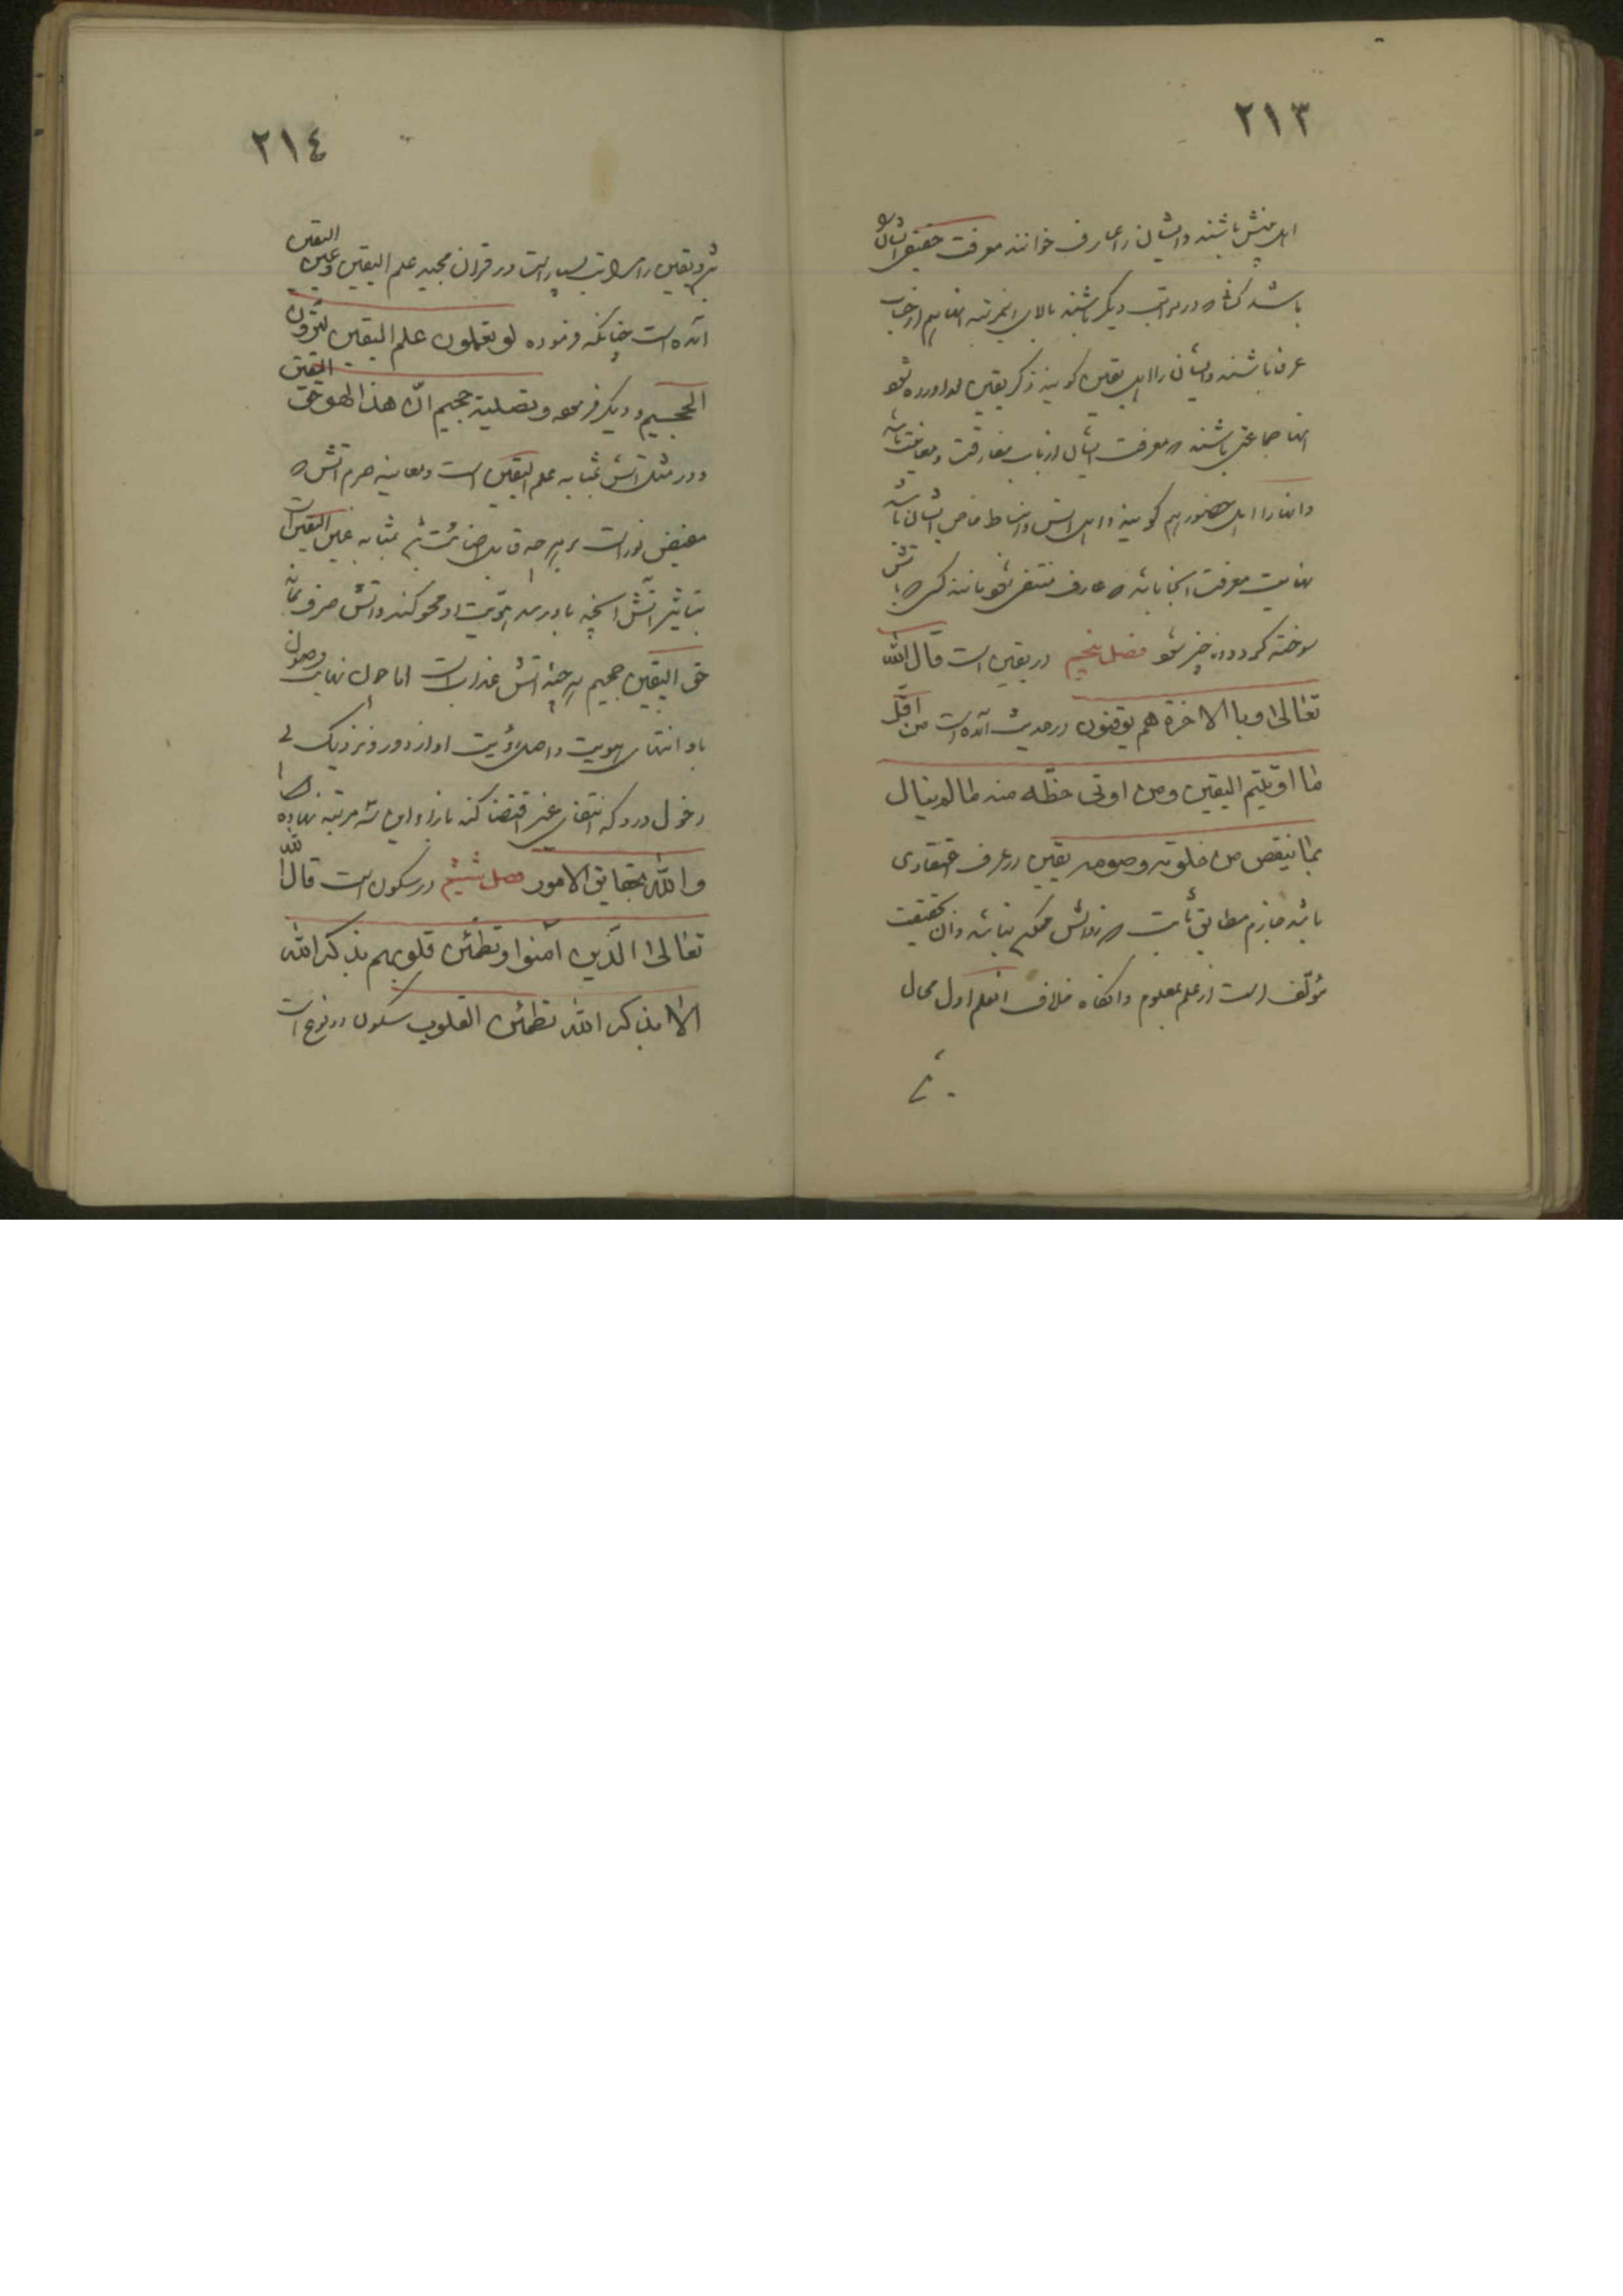 ٢١٣
اهل بینش باشند و ایشان را عارف خوانند معرفت حقیقی ایشانرا
باشد کسانی که در مراتب دیگر باشند بالای این مرتبه آنها هم از حساب
عرفا باشند و ایشان را اهل یقین گویند ذکر یقین بعد آورده شود
آنها جماعتی باشند که معرفت ایشان از باب مفارقت و معاینت باشد
و آنها را اهل حضور هم گویند و اهل انس و انبساط خاص ایشان باشد
نهایت معرفت اینجا باشد که عارف منتفی شود مانند کسی که به آتش
سوخته گردد و ناچیز شود فصل پنجم در یقین است قال الله
تعالی و بالاخرة هم یوقنون در حدیث آمده است من اقل
ما اوتیتم الیقین ومن اوتی حظه منه ما لم ینال
بما نیقص من خلوته وصومه یقین در عرف اعتقادی
باشد جازم مطابق ثابت که زوالش ممکن نباشد و آن بحقیقت
مؤلف است از علم بمعلوم و آنگاه خلاف آن علم اول محال
٢١٤
شود یقین را مراتب بسیار است در قران مجید علم الیقین وعین الیقین
آمده است چنانکه فرموده لو تعلمون علم الیقین لترون
الجحیم و دیگر فرموده وتصلیة جحیم ان هذا لهو حق الیقین
و در مثل آتش بمثابه علم الیقین است و معاینه جرم آتش که
مفیض نور است بر هر چه قابل اضائت است بمثابه عین الیقین است
تاثیر آتش آنچه باو رسد تا هویت او محو کند و آتش صرف بماند
حق الیقین جحیم هر چند آتش عذاب است اما چون نهایت وصول
باو انتهای هویت واصل رؤیت او از دور و نزدیک و
دخول در او که انتفای غیر اقتضا کند بازاء این سه مرتبه نهاده
والله بحقایق الامور فصل ششم در سکون است قال الله
تعالی الذین آمنوا وتطمئن قلوبهم بذکر الله
الا بذکر الله تطمئن القلوب سکون دو نوع است